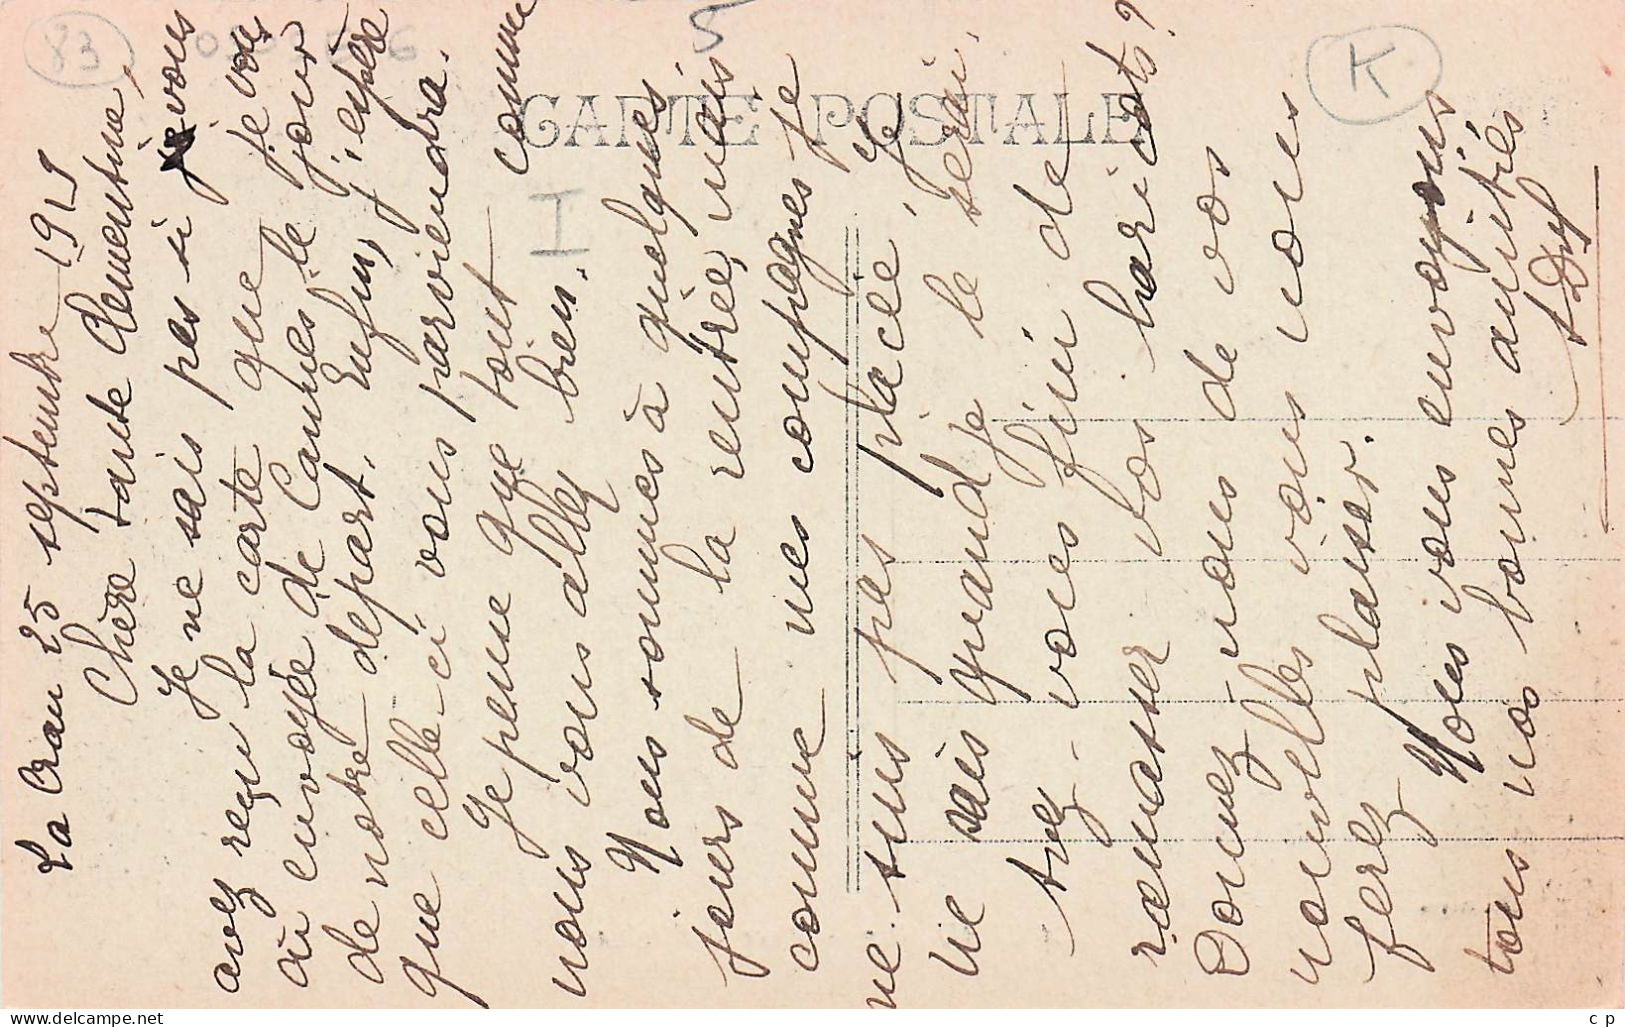 La Crau 25 septembre 1915
Chère tante Clementine,
Je ne sais pas si vous
avez reçu la carte que je vous
ai envoyée de Cannes le jour
de notre départ. Enfin, j'espère
que celle-ci vous parviendra.
Je pense que tout comme
nous vous allez bien.
Nous sommes à quelques
jours de la rentrée, mais
comme mes compagnes je
ne suis pas placé. Je
ne sais quand je le serai.
tez-vous fini de
ramasser vos haricots?
Donnez-nous de vos
nouvelles vous nous
ferez plaiser.
Nous vous envoyons
tous nos bonnes amitiés
CARTE POSTALE
83
5
K
I
cp
www.delcampe.net